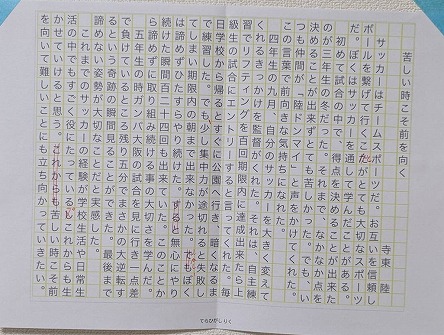 苦しい時こそ前を向く
寺東 陸
サッカーはチームスポーツだ。お互いを信頼し
ボールを繋げて行くことがとても大切なスポーツ
だ。ぼくはサッカーを通して学んだことがある。
初めて試合の中で、得点を決めることが出来た
のが三年生の冬だった。それまで、なかなか点を
決めることが出来ずとても苦しかった。でも、い
つも仲間が「陸ドンマイ」と声をかけてくれた。
この言葉で前向きな気持ちになれた。
四年生の九月、自分のサッカーを大きく変えて
くれるきっかけを監督がくれた。それは、自主練
習でリフティングを百回期限内に達成出来たら上
級生の試合にエントリーすると言ってくれた。毎
日学校から帰るとすぐに公園へ行き、暗くなるま
で練習した。でも少し集中力が途切れると失敗し
てしまい期限内の朝まで出来なかった。でもぼく
は諦めずひたすらやり続けた。すると無心にやり
続けた瞬間百二十四回も出来ていた。このことか
ら諦めずに取り組み続ける事の大切さを学んだ。
五年生の時ガンバ大阪の試合を見に行き一点差
で負けているところ残り五分でまさかの大逆転す
るという奇跡の瞬間見ることができた。最後まで
諦めない姿勢が大切なことだと実感した。
これまでのサッカーの経験が学校生活や日常生
活の中でもすごく役にたっている。これからも生
かせていけると思う。これからも苦しい時こそ前
を向いて難しいことにも立ち向かっていきたい。
てらひがし りく